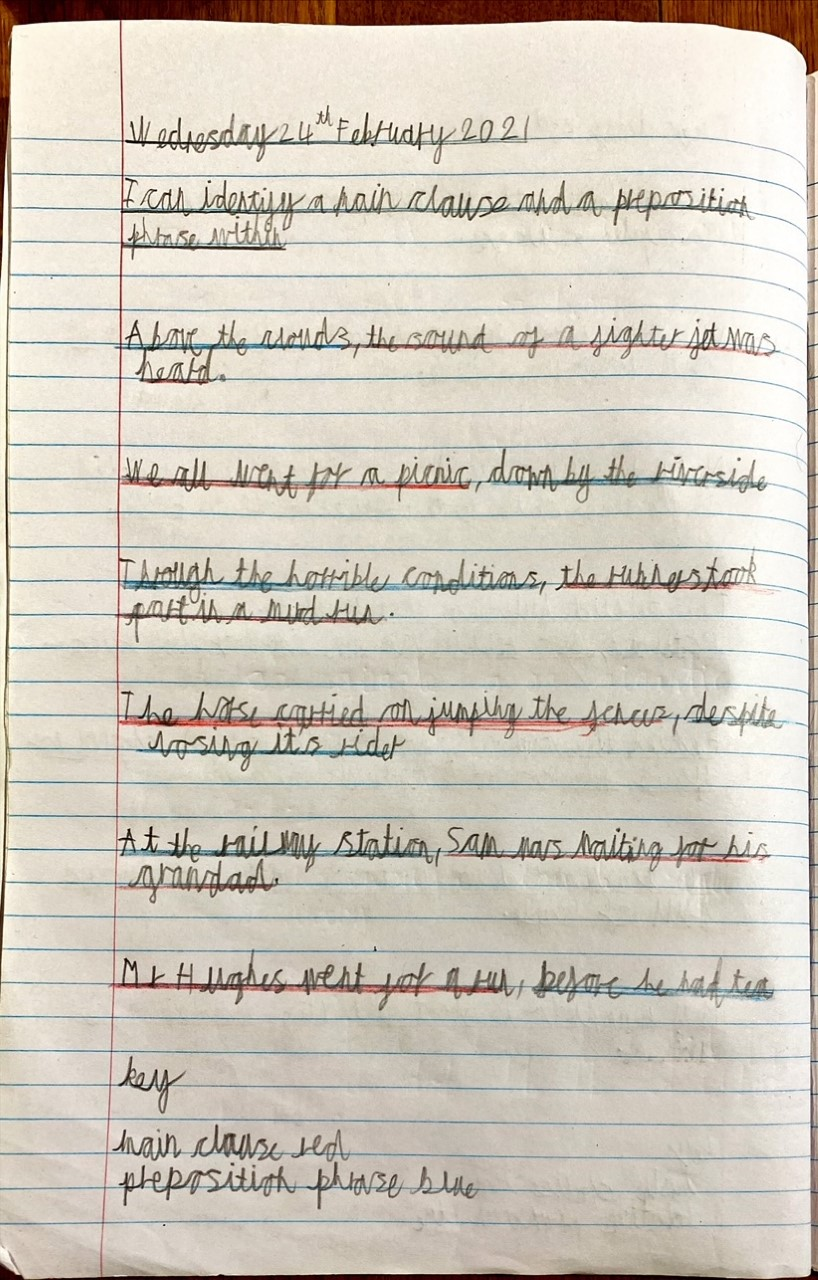 Wednesday 24th February 2021
I can identify a main clause and a preposition
phrase within
Above the clouds, the sound of a fighter jet was
heard.
We all went for a picnic, down by the riverside
Through the horrible conditions, the runners took
part in a mud run.
The horse carried on jumping the fences, despite
losing it's rider
At the railway station, Sam was waiting for his
grandad.
Mr Hughes went for a run, before he had tea
key
main clause red
preposition phrase blue